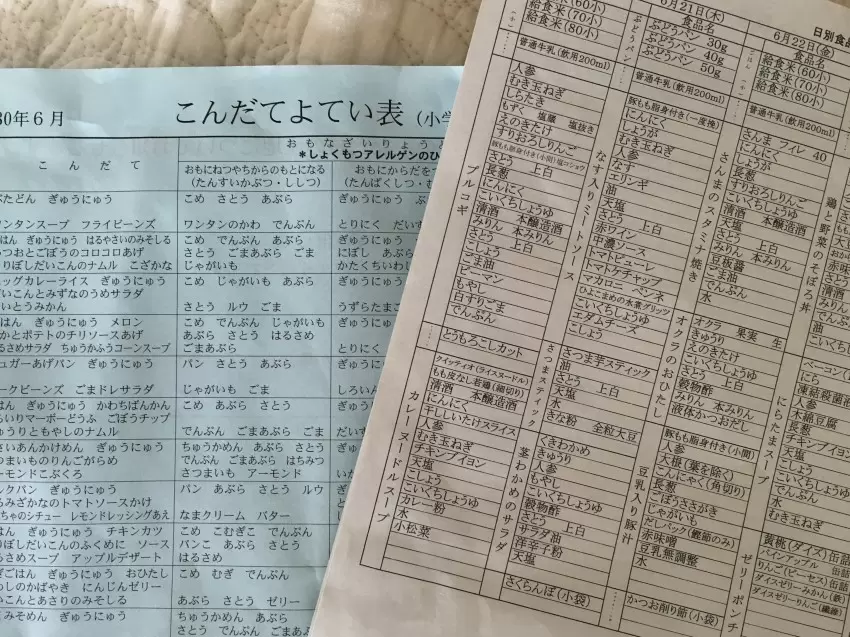 30年6月
こんだてよてい表
(小学
こんだて
おもなざいりょう
*しょくもつアレルゲンのひ
おもにねつやちからのもとになる
(たんすいかぶつ・ししつ)
おもにからだを
(たんぱくしつ・む
ぶたどん ぎゅうにゅう
こめ さとう あぶら
ぎゅうにゅう
ワンタンスープ フライビーンズ
ワンタンのかわ でんぷん
とりにく だいず
ごはん ぎゅうにゅう はるやさいのみそしる
こめ でんぷん あぶら
ぎゅうにゅう
つおとごぼうのコロコロあげ
さとう ごまあぶら ごま
にぼし あぶ
りぼしだいこんのナムル こざかな
じゃがいも
かたくちいわし
エッグカレーライス ぎゅうにゅう
こめ あぶら じゃがいも
ぎゅうにゅう
だいこんとみずなのうめサラダ
れいとうみかん
さとう ルウ ごま
うずらたまご
ごはん ぎゅうにゅう メロン
こめ でんぷん じゃがいも
ぎゅうにゅう
かとポテトのチリソースあげ
あぶら さとう はるさめ
るさめサラダ ちゅうかふうコーンスープ
ごまあぶら
とりにく
シュガーあげパン ぎゅうにゅう
パン さとう あぶら
ぎゅうにゅう
ポークビーンズ ごまドレサラダ
じゃがいも ごま
しろいん
ごはん ぎゅうにゅう かわちばんかん
こめ あぶら さとう
ぎゅう
いりマーボーどうふ ごぼうチップ
ゅうりともやしのナムル
でんぷん ごまあぶら ごま
だいず
さいあんかけめん ぎゅうにゅう
ちゅうかめん あぶら さとう
ぎゅう
つまいものりんごがらめ
でんぷん ごまあぶら はちみつ
ーモンドこざくろ
さつまいも アーモンド
ルクパン ぎゅうにゅう
パン あぶら さとう ルウ
ぎゅう
ろみざかなのトマトソースかけ
ぼちゃのシチュー レモンドレッシングあえ
なまクリーム バター
ごはん ぎゅうにゅう チキンカツ
こめ こむぎこ でんぷん
りぼしだいこんのふくめに ソース
パンこ あぶら さとう
るさめスープ アップルデザート
はるさめ
ぎごはん ぎゅうにゅう おひたし
こめ むぎ でんぷん
わしのかばやき にんじんゼリー
いこんとあさりのみそしる
あぶら さとう ゼリー
くみそめん ぎゅうにゅう
ちゅうかめん あぶら
さとう でんぷん ごまあ
給食米(60小)
給食米(70小)
給食米(80小)
普通牛乳(飲用200ml)
プルコギ
人参
むき玉ねぎ
しらたき
もずく 塩蔵 塩抜き
えのきたけ
すりおろしりんご
豚もも脂身付き(小間)塩コショウ
さとう 上白
長葱
にんにく
こいくちしょうゆ
清酒 本醸造酒
みりん 本みりん
さとう 上白
こしょう
ごま油
ピーマン
もやし
白すりごま
でんぷん
とうもろこしカット
カレーヌードルスープ
クイッティオ(ライスヌードル)
もも皮なし若鶏(細切り)
清酒 本醸造酒
にんにく
干ししいたけスライス
人参
むき玉ねぎ
チキンブイヨン
天塩
こしょう
こいくちしょうゆ
カレー粉
水
小松菜
6月21日(木)
食品名
ぶどうパン
ぶどうパン 30g
ぶどうパン 40g
ぶどうパン 50g
普通牛乳(飲用200ml)
なす入りミートソース
豚もも脂身付き(一度挽)
にんにく
しょうが
むき玉ねぎ
人参
なす
エリンギ
油
天塩
さとう 上白
赤ワイン
中濃ソース
トマトピューレ
トマトケチャップ
マカロニ ペンネ
ひよこまめの水煮グリッツ
こいくちしょうゆ
エダムチーズ
こしょう
さつまスティック
さつま芋スティック
油
さとう 上白
天塩
水
きな粉 全粒大豆
茎わかめのサラダ
くきわかめ
きゅうり
人参
もやし
こいくちしょうゆ
穀物酢
さとう 上白
サラダ油
洋辛子粉
天塩
さくらんぼ(小袋)
日別食品
6月22日(金)
食品名
ごはん
給食米(60小)
給食米(70小)
給食米(80小)
普通牛乳(飲用200ml)
さんまのスタミナ焼き
さんま フィレ 40
にんにく
しょうが
長葱
すりおろしりんご
こいくちしょうゆ
清酒 本醸造酒
天塩
さとう 上白
みりん 本みりん
豆板醤
ごま油
でんぷん
水
オクラのおひたし
オクラ 果実 生
きゅうり
えのきたけ
こいくちしょうゆ
さとう 上白
穀物酢
みりん 本みりん
液体かつおだし
豆乳入り豚汁
豚もも脂身付き(小間)
人参
大根(葉を除く)
こんにゃく(角切り)
長葱
ごぼうささがき
じゃがいも
だしパック(鰹節のみ)
赤味噌
豆乳無調整
水
かつお削り節(小袋)
鶏と野菜のそぼろ丼
にらたまスープ
ベーコン
にら
凍結殺菌液
人参
木綿豆腐
長葱
チキンブイヨン
天塩
こしょう
こいくちしょうゆ
でんぷん
水
むき玉ねぎ
ゼリーポンチ
黄桃(ダイス)缶詰
パインアップル 缶詰
りんご(ピーセス)缶詰
ダイスゼリーみかん(鉄)
ダイスゼリーりんご(繊維)